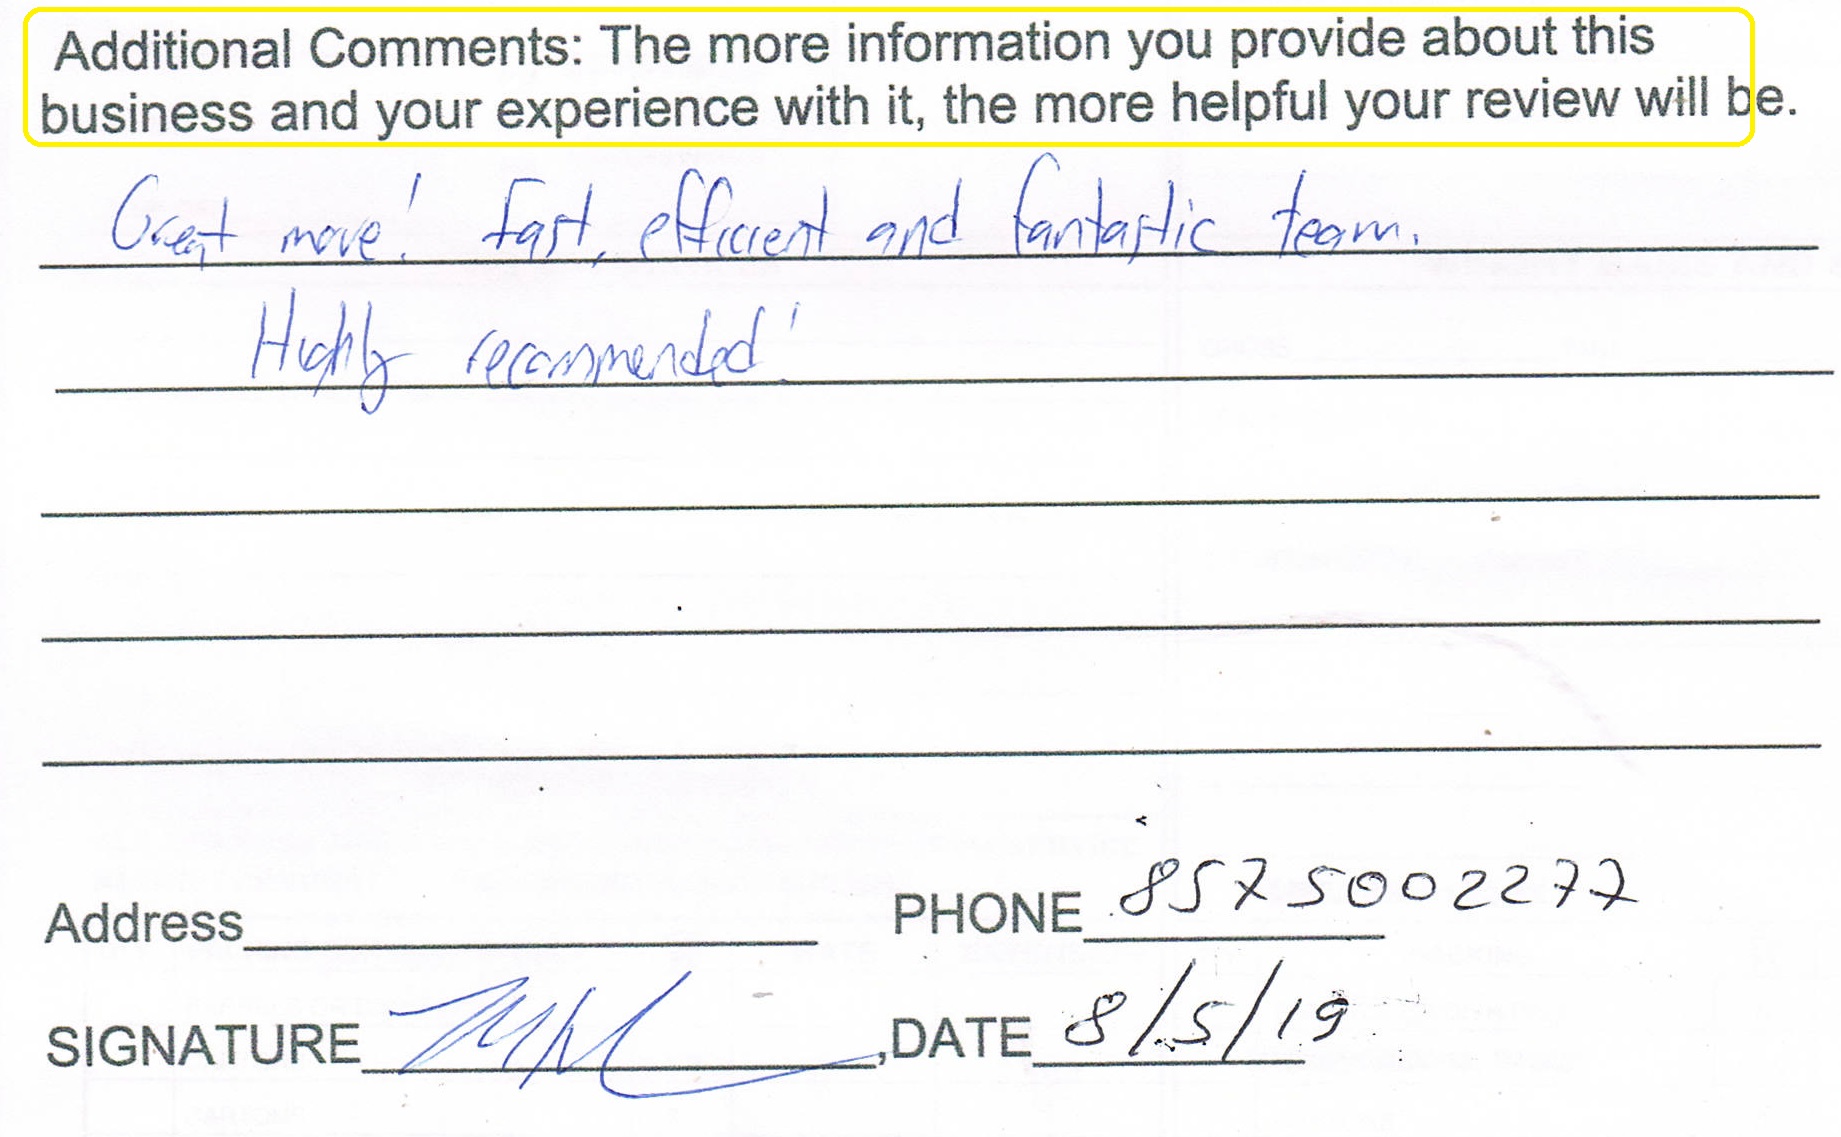 Additional Comments: The more information you provide about this
business and your experience with it, the more helpful your review will be.
Great move! Fast, efficient and fantastic team.
Highly recommended!
Address PHONE 8575002277
SIGNATURE ,DATE 8/5/19